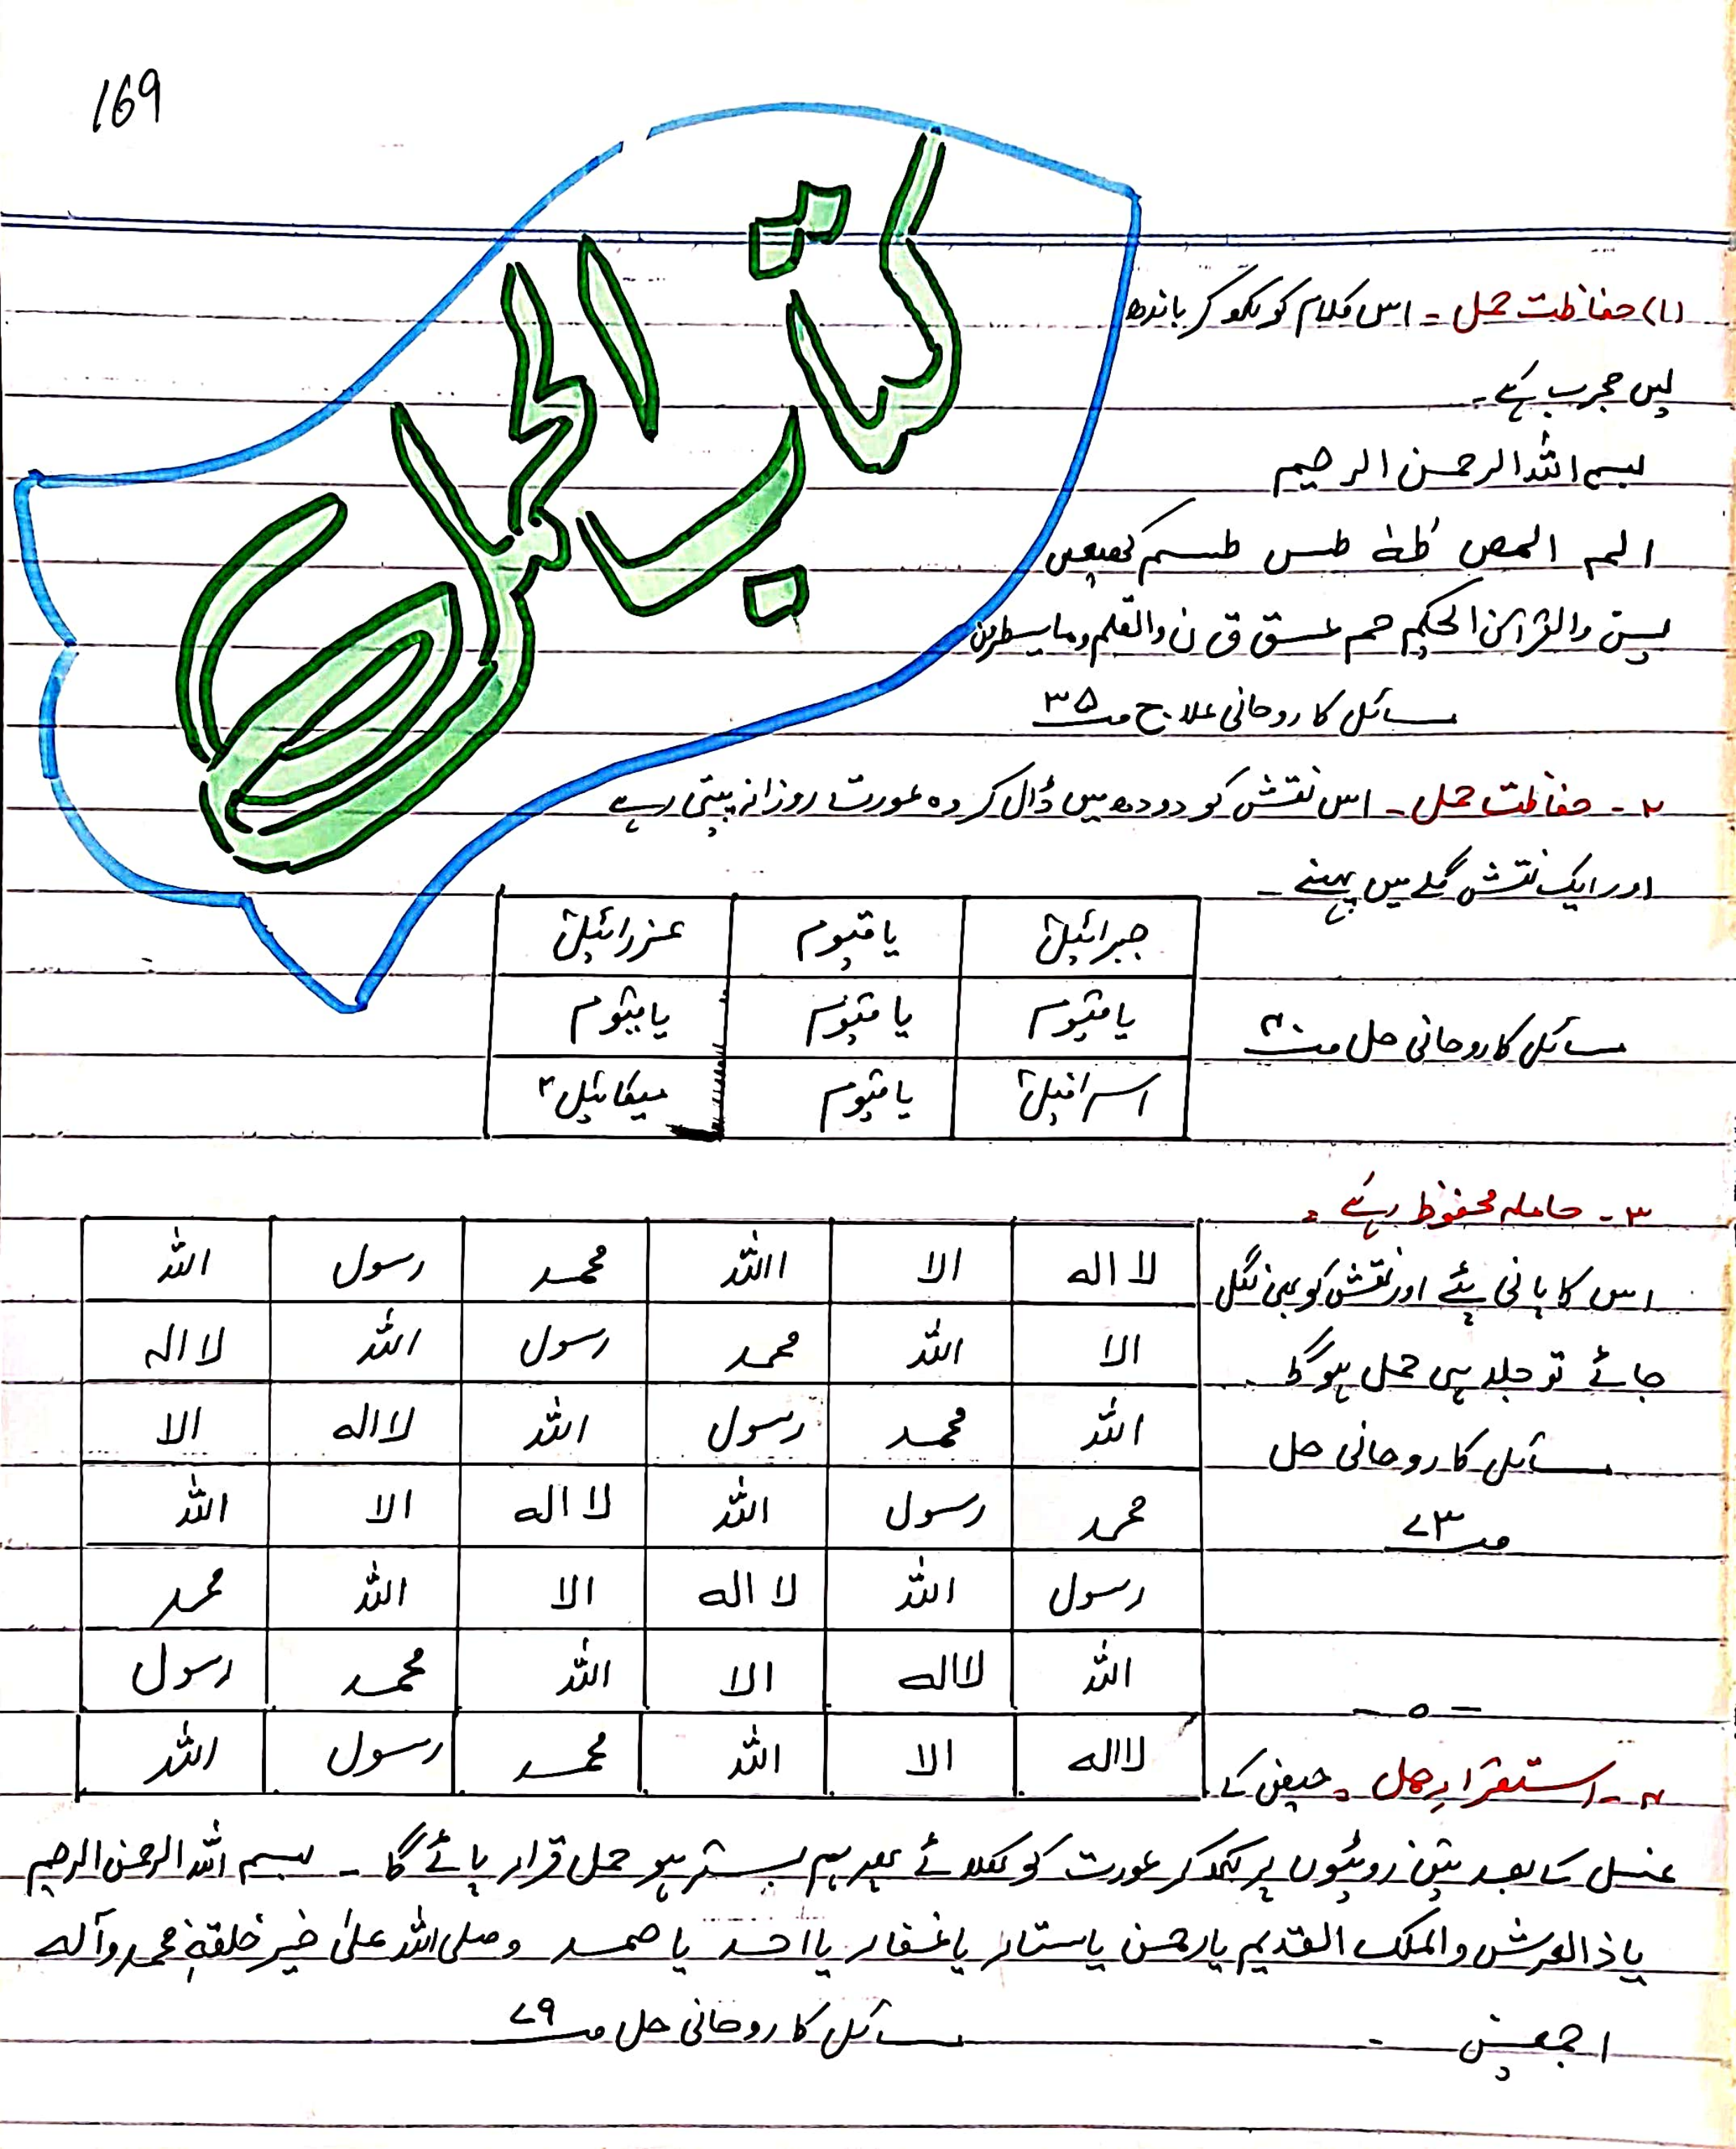 169
کتاب الحمل
(۱) حفاظت حمل ۔ اس کلام کو لکھ کر باندھ
لیں مجرب ہے۔
بسم اللہ الرحمن الرحیم
الم المص طہٰ طس طسم کھیعص
یسٓ والقرآن الحکیم حم عسق ق ن والقلم وما یسطرون
مسائل کا روحانی علاج صـ ۳۵
۲ ۔ حفاظت حمل ۔ اس نقش کو دودھ میں ڈال کر وہ عورت روزانہ پیتی رہے
اور ایک نقش گلے میں پہنے ۔
جبرائیلؑ یا قیوم عزرائیلؑ
یا قیوم یا قیوم یا قیوم
اسرافیلؑ یا قیوم میکائیلؑ
مسائل کا روحانی حل صـ
۳ ۔ حاملہ محفوظ رہے ۔
اس کا پانی پئے اور نقش کو بھی نگل
جائے تو جلد ہی حمل ہو گا ۔
مسائل کا روحانی حل
صـ ۷۳
لا الہ الا اللہ محمد رسول اللہ
الا اللہ محمد رسول اللہ لا الہ
اللہ محمد رسول اللہ لا الہ الا
محمد رسول اللہ لا الہ الا اللہ
رسول اللہ لا الہ الا اللہ محمد
اللہ لا الہ الا اللہ محمد رسول
لا الہ الا اللہ محمد رسول اللہ
۴ ۔ استقرارِ حمل ۔ حیض کے
غسل کے بعد تین روٹیوں پر لکھ کر عورت کو کھلائے پھر ہم بستر ہو حمل قرار پائے گا ۔ بسم اللہ الرحمن الرحیم
یا ذالعرش والملک القدیم یا رحمن یا ستار یا غفار یا احد یا صمد وصلی اللہ علیٰ خیر خلقہٖ محمد وآلہ
اجمعین ۔ مسائل کا روحانی حل صـ ۷۹